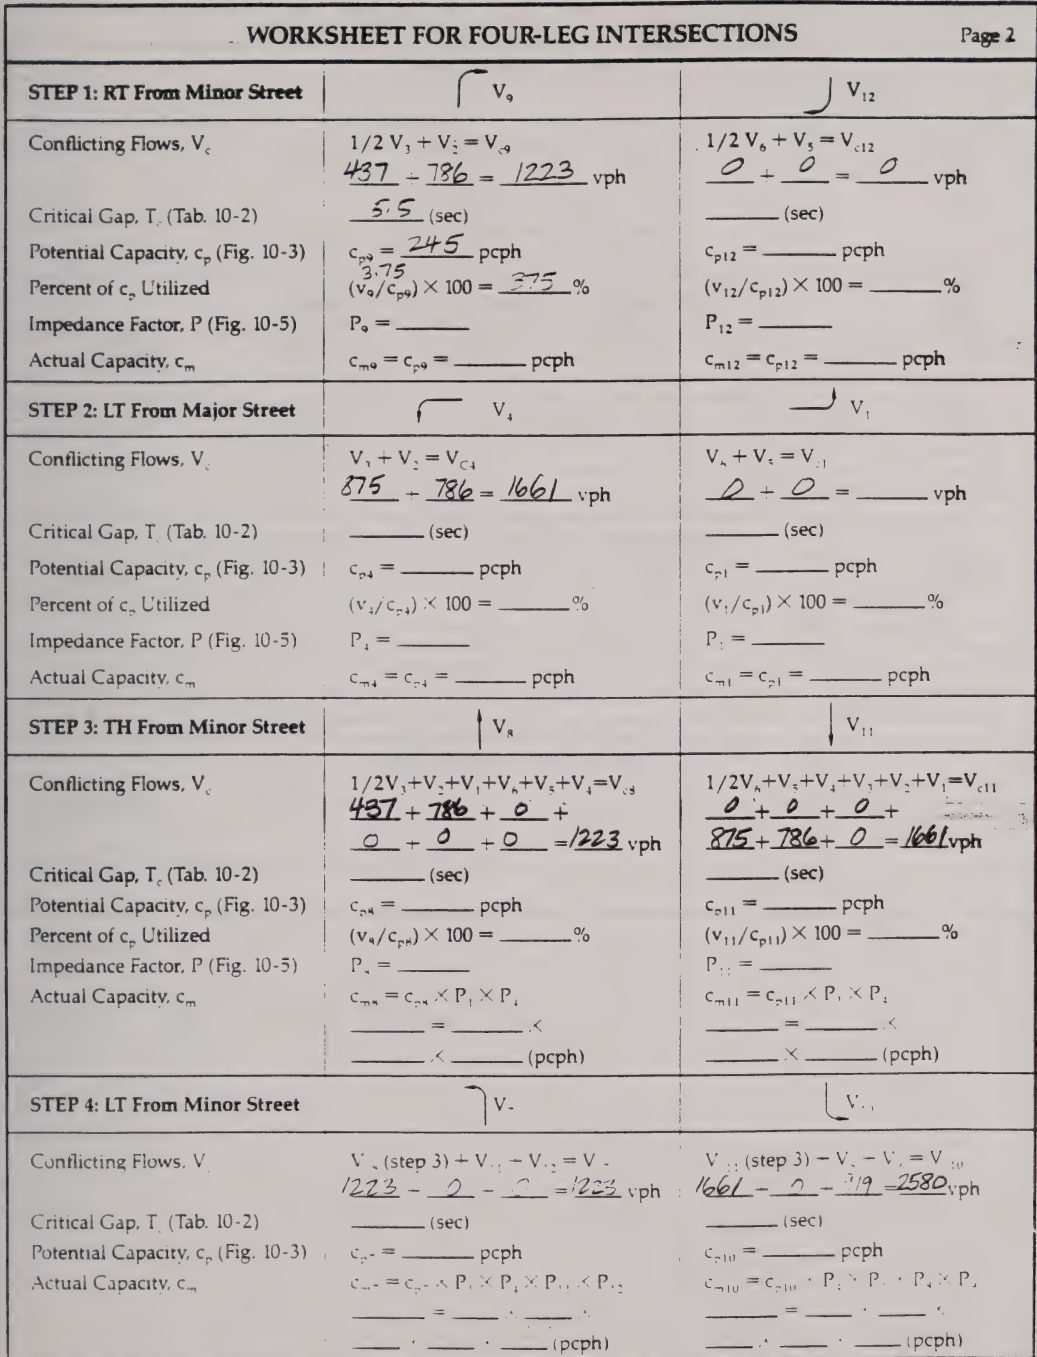 WORKSHEET FOR FOUR-LEG INTERSECTIONS Page 2
STEP 1: RT From Minor Street V₉ V₁₂
Conflicting Flows, V_c 1/2 V₃ + V₂ = V_c9 1/2 V₆ + V₅ = V_c12
437 + 786 = 1223 vph 0 + 0 = 0 vph
Critical Gap, T (Tab. 10-2) 5.5 (sec) ____ (sec)
Potential Capacity, c_p (Fig. 10-3) c_p9 = 245 pcph c_p12 = ____ pcph
3.75
Percent of c_p Utilized (v₉/c_p9) × 100 = 375 % (v₁₂/c_p12) × 100 = ____ %
Impedance Factor, P (Fig. 10-5) P₉ = ____ P₁₂ = ____
Actual Capacity, c_m c_m9 = c_p9 = ____ pcph c_m12 = c_p12 = ____ pcph
STEP 2: LT From Major Street V₄ V₁
Conflicting Flows, V V₃ + V₂ = V_C4 V₆ + V₅ = V_c1
875 + 786 = 1661 vph 0 + 0 = ____ vph
Critical Gap, T (Tab. 10-2) ____ (sec) ____ (sec)
Potential Capacity, c_p (Fig. 10-3) c_p4 = ____ pcph c_p1 = ____ pcph
Percent of c_p Utilized (v₄/c_p4) × 100 = ____ % (v₁/c_p1) × 100 = ____ %
Impedance Factor, P (Fig. 10-5) P₄ = ____ P₁ = ____
Actual Capacity, c_m c_m4 = c_p4 = ____ pcph c_m1 = c_p1 = ____ pcph
STEP 3: TH From Minor Street V₈ V₁₁
Conflicting Flows, V_c 1/2V₃+V₂+V₁+V₆+V₅+V₄=V_c8 1/2V₆+V₅+V₄+V₃+V₂+V₁=V_c11
437 + 786 + 0 + 0 + 0 + 0 +
0 + 0 + 0 = 1223 vph 875 + 786 + 0 = 1661 vph
Critical Gap, T_c (Tab. 10-2) ____ (sec) ____ (sec)
Potential Capacity, c_p (Fig. 10-3) c_p8 = ____ pcph c_p11 = ____ pcph
Percent of c_p Utilized (v₈/c_p8) × 100 = ____ % (v₁₁/c_p11) × 100 = ____ %
Impedance Factor, P (Fig. 10-5) P₈ = ____ P₁₁ = ____
Actual Capacity, c_m c_m8 = c_p8 × P₁ × P₄ c_m11 = c_p11 × P₁ × P₄
____ = ____ × ____ = ____ ×
____ × ____ (pcph) ____ × ____ (pcph)
STEP 4: LT From Minor Street V V
Conflicting Flows, V (step 3) (step 3)
1223 - 0 - 0 = 1223 vph 1661 - 0 - 919 = 2580 vph
Critical Gap, T (Tab. 10-2) ____ (sec) ____ (sec)
Potential Capacity, c_p (Fig. 10-3) ____ pcph c_p10 = ____ pcph
Actual Capacity, c_m
(pcph) (pcph)